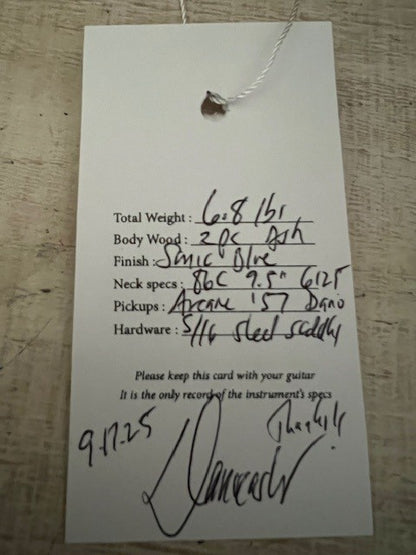 Total Weight : 6.8 lbs
Body Wood : 2 pc Ash
Finish : Sonic Blue
Neck specs : 86C 9.5" 6125
Pickups : Arcane '57 Dano
Hardware : 5/16 steel saddles
Please keep this card with your guitar
It is the only record of the instrument's specs
9.17.25 Thanks!!
Danocaster